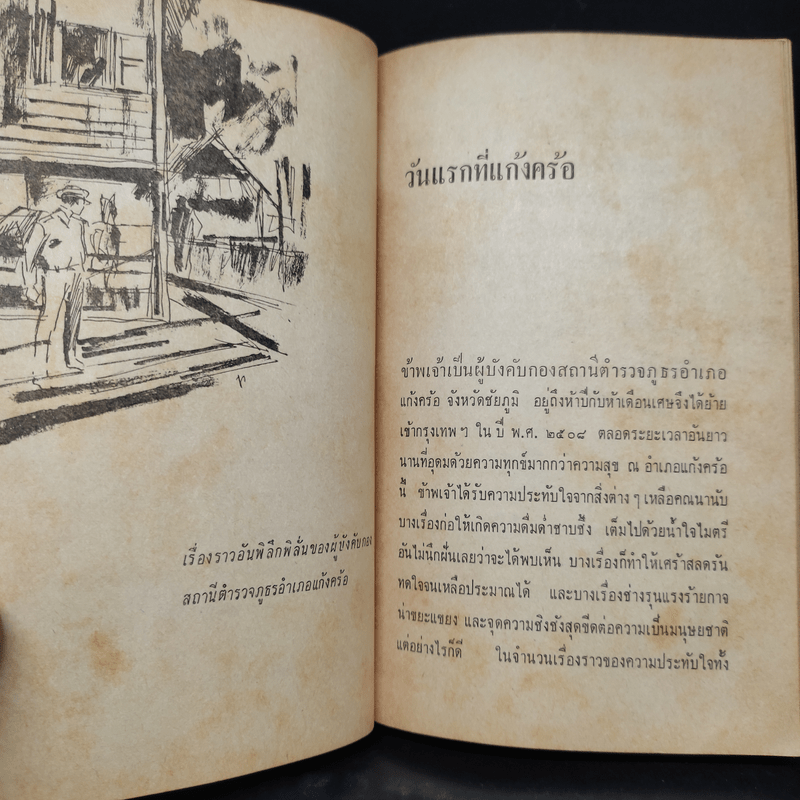 เรื่องราวอันพิลึกพิลั่นของผู้บังคับกอง
สถานีตำรวจภูธรอำเภอแก้งคร้อ
วันแรกที่แก้งคร้อ
ข้าพเจ้าเป็นผู้บังคับกองสถานีตำรวจภูธรอำเภอ
แก้งคร้อ จังหวัดชัยภูมิ อยู่ถึงห้าปีกับห้าเดือนเศษจึงได้ย้าย
เข้ากรุงเทพฯ ใน ปี พ.ศ. ๒๕๐๘ ตลอดระยะเวลาอันยาว
นานที่อุดมด้วยความทุกข์มากกว่าความสุข ณ อำเภอแก้งคร้อ
นี้ ข้าพเจ้าได้รับความประทับใจจากสิ่งต่าง ๆ เหลือคณนานับ
บางเรื่องก่อให้เกิดความดื่มด่ำซาบซึ้ง เต็มไปด้วยน้ำใจไมตรี
อันไม่นึกฝันเลยว่าจะได้พบเห็น บางเรื่องก็ทำให้เศร้าสลดรัน
ทดใจจนเหลือประมาณได้ และบางเรื่องช่างรุนแรงร้ายกาจ
น่าขยะแขยง และจุดความชิงชังสุดขีดต่อความเป็นมนุษยชาติ
แต่อย่างไรก็ดี ในจำนวนเรื่องราวของความประทับใจทั้ง